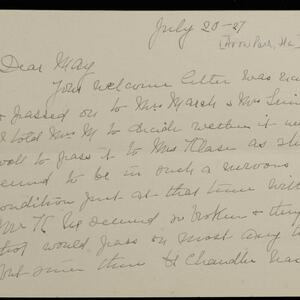 July 20-27
[Avon Park, Fla.]
Dear May
Your welcome letter was
passed on to Mrs Marsh & Mrs
I told Mrs M to decide wether it
well to pass it to Mrs Klase as she
seemed to be in such a nervous
condition just at that time with
Mr K he seemed so broken & they
that would pass on most any
but since then Chandler